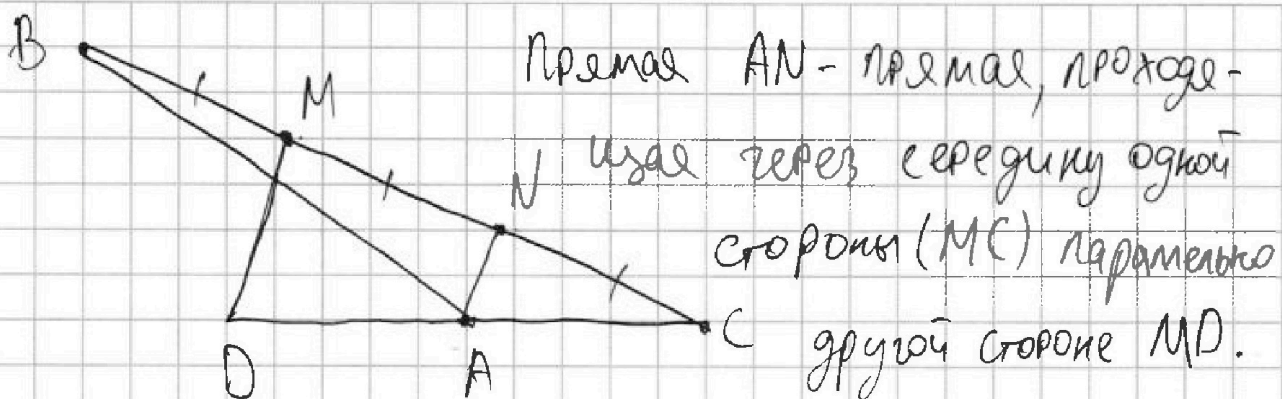 B
M
Прямая AN - прямая, проходя-
N
щая через середину одной
стороны (MC) паралельно
другой стороне MD.
C
D
A